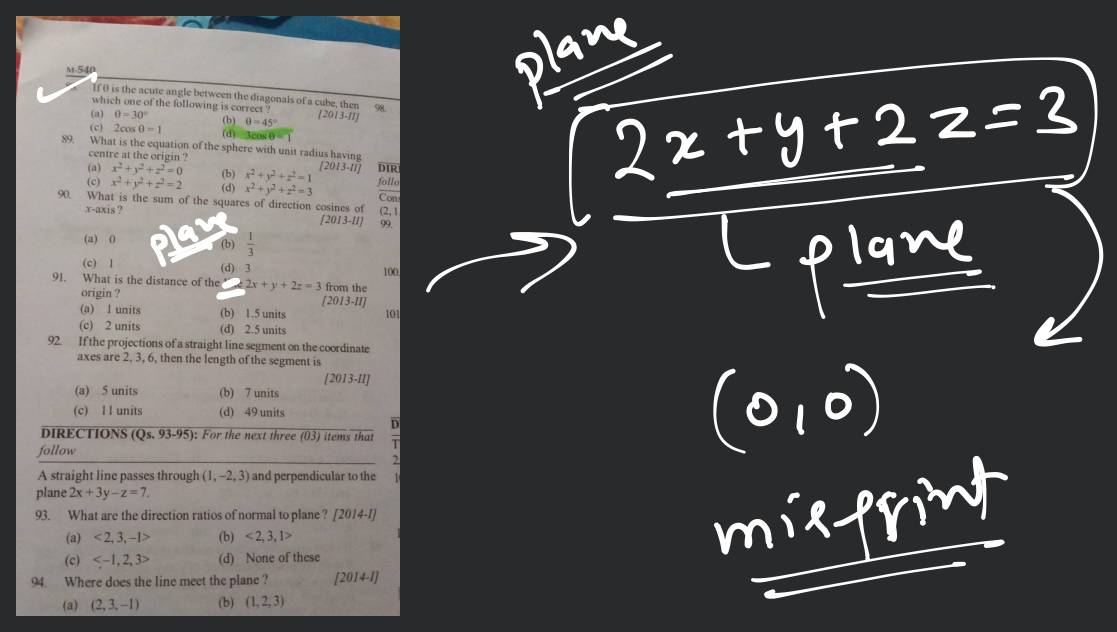 M-540
If θ is the acute angle between the diagonals of a cube, then
which one of the following is correct ?
[2013-II]
(a) θ = 30° (b) θ = 45°
(c) 2cos θ = 1 (d) 3cos θ = 1
89. What is the equation of the sphere with unit radius having
centre at the origin ? [2013-II]
(a) x² + y² + z² = 0 (b) x² + y² + z² = 1
(c) x² + y² + z² = 2 (d) x² + y² + z² = 3
90. What is the sum of the squares of direction cosines of
x-axis ? [2013-II]
(a) 0 (b) 1/3
(c) 1 (d) 3
plane
91. What is the distance of the 2x + y + 2z = 3 from the
origin ? [2013-II]
(a) 1 units (b) 1.5 units
(c) 2 units (d) 2.5 units
92. If the projections of a straight line segment on the coordinate
axes are 2, 3, 6, then the length of the segment is
[2013-II]
(a) 5 units (b) 7 units
(c) 11 units (d) 49 units
DIRECTIONS (Qs. 93-95): For the next three (03) items that
follow
A straight line passes through (1, –2, 3) and perpendicular to the
plane 2x + 3y – z = 7.
93. What are the direction ratios of normal to plane ? [2014-I]
(a) <2, 3, –1> (b) <2, 3, 1>
(c) <–1, 2, 3> (d) None of these
94. Where does the line meet the plane ? [2014-I]
(a) (2, 3, –1) (b) (1, 2, 3)
98.
DIR
follo
Cons
(2, 1
99.
100.
101
plane
2x + y + 2z = 3
plane
(0, 0)
misprint